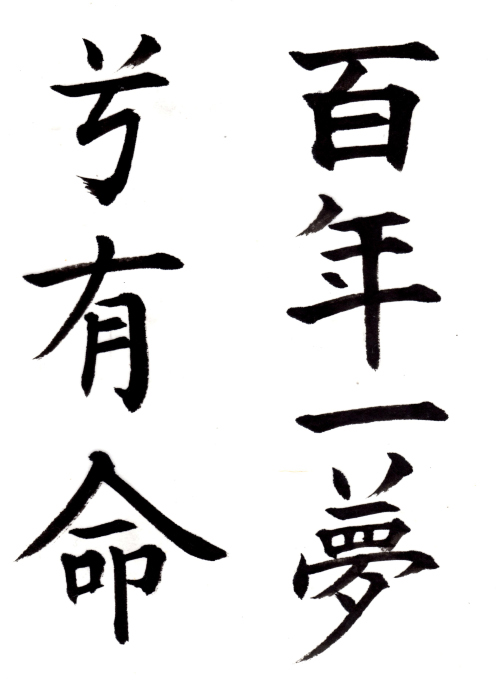 百年一夢
兮有命